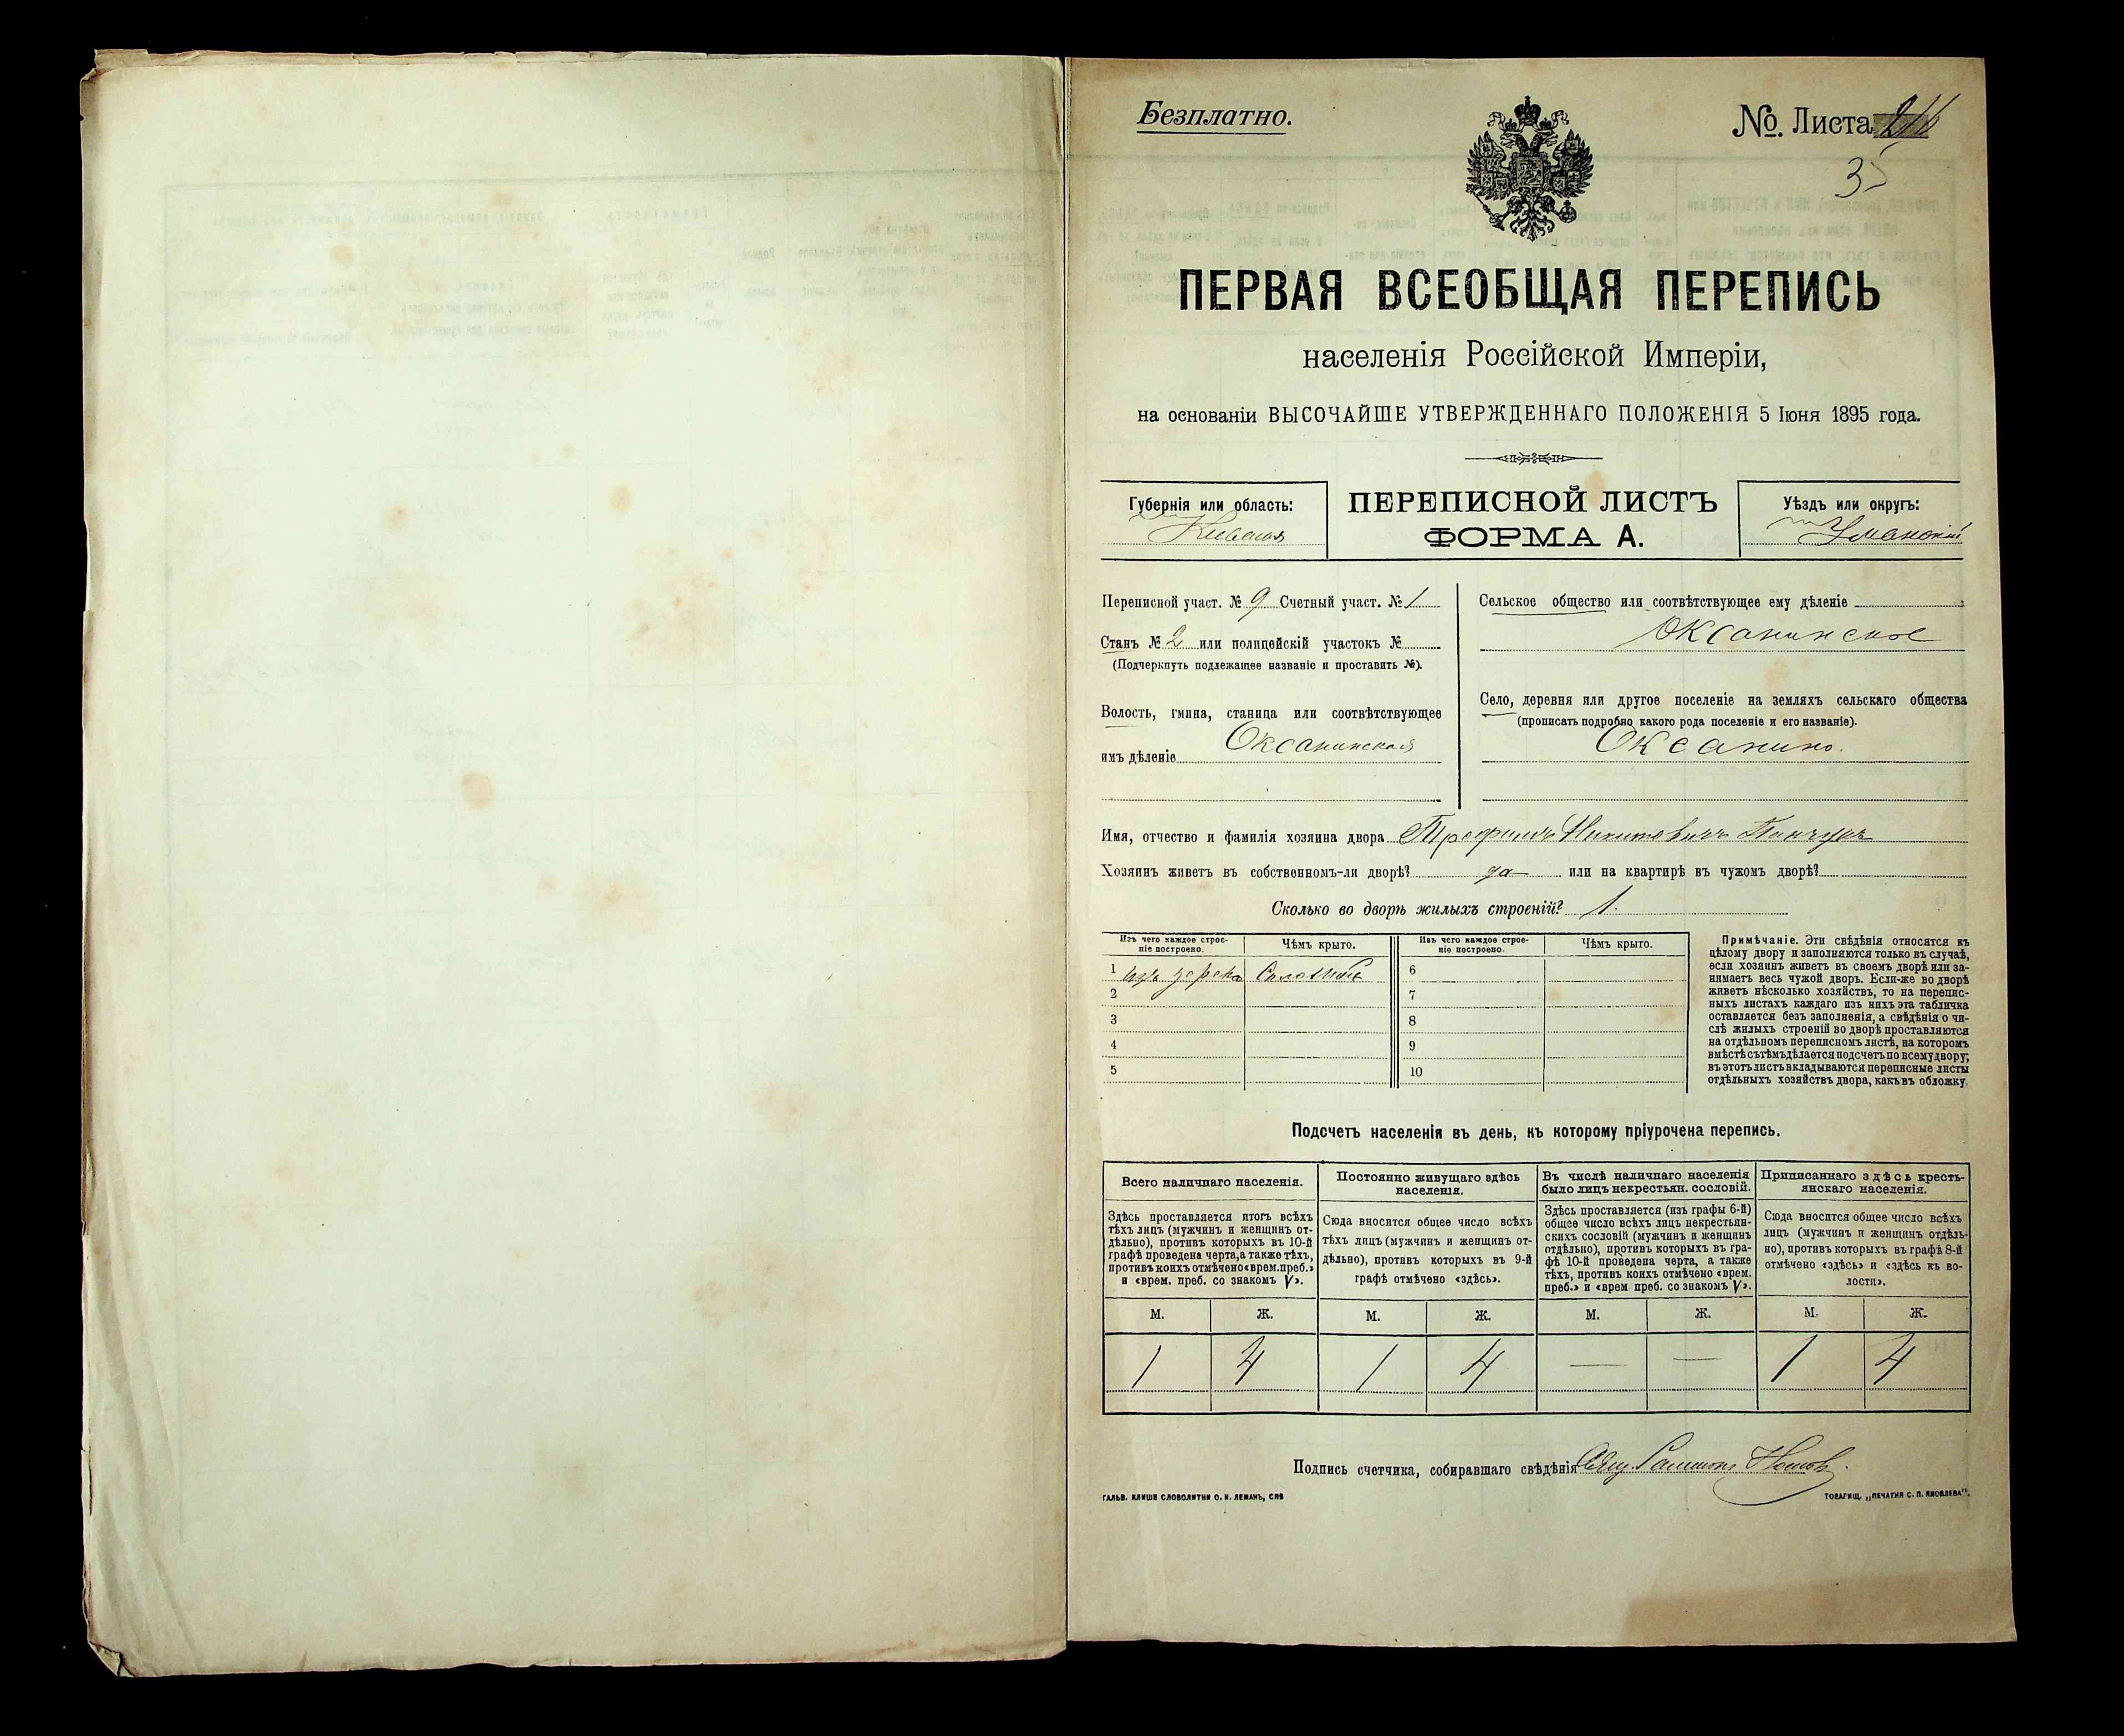 Безплатно.
№. Листа
35
ПЕРВАЯ ВСЕОБЩАЯ ПЕРЕПИСЬ
населенія Россійской Имперіи,
на основаніи ВЫСОЧАЙШЕ УТВЕРЖДЕННАГО ПОЛОЖЕНІЯ 5 Іюня 1895 года.
Губернія или область:
Кіевская
ПЕРЕПИСНОЙ ЛИСТЪ
ФОРМА А.
Уѣздъ или округъ:
Уманскій
Переписной участ. № 9 Счетный участ. № 1
Станъ № 2 или полицейскій участокъ №
(Подчеркнуть подлежащее названіе и проставить №).
Волость, гмина, станица или соотвѣтствующее
имъ дѣленіе Оксанинская
Сельское общество или соотвѣтствующее ему дѣленіе
Оксанинское
Село, деревня или другое поселеніе на земляхъ сельскаго общества
(прописать подробно какого рода поселеніе и его названіе).
Оксанино.
Имя, отчество и фамилія хозяина двора Трофимъ Никитовичъ
Хозяинъ живетъ въ собственномъ-ли дворѣ? да или на квартирѣ въ чужомъ дворѣ?
Сколько во дворѣ жилыхъ строеній? 1.
Изъ чего каждое строе-
ніе построено.
Чѣмъ крыто.
Изъ чего каждое строе-
ніе построено.
Чѣмъ крыто.
1 изъ дерева Соломой 6
2 7
3 8
4 9
5 10
Примѣчаніе. Эти свѣдѣнія относятся къ
цѣлому двору и заполняются только въ случаѣ,
если хозяинъ живетъ въ своемъ дворѣ или за-
нимаетъ весь чужой дворъ. Если-же во дворѣ
живетъ нѣсколько хозяйствъ, то на перепис-
ныхъ листахъ каждаго изъ нихъ эта табличка
оставляется безъ заполненія, а свѣдѣнія о чи-
слѣ жилыхъ строеній во дворѣ проставляются
на отдѣльномъ переписномъ листѣ, на которомъ
вмѣстѣ съ тѣмъ дѣлается подсчетъ по всему двору;
въ этотъ листъ вкладываются переписные листы
отдѣльныхъ хозяйствъ двора, какъ въ обложку.
Подсчетъ населенія въ день, къ которому пріурочена перепись.
Всего наличнаго населенія.
Здѣсь проставляется итогъ всѣхъ
тѣхъ лицъ (мужчинъ и женщинъ от-
дѣльно), противъ которыхъ въ 10-й
графѣ проведена черта, а также тѣхъ,
противъ коихъ отмѣчено «врем. преб.»
и «врем. преб. со знакомъ V».
Постоянно живущаго здѣсь
населенія.
Сюда вносится общее число всѣхъ
тѣхъ лицъ (мужчинъ и женщинъ от-
дѣльно), противъ которыхъ въ 9-й
графѣ отмѣчено «здѣсь».
Въ числѣ наличнаго населенія
было лицъ некрестьян. сословій.
Здѣсь проставляется (изъ графы 6-й)
общее число всѣхъ лицъ некрестьян-
скихъ сословій (мужчинъ и женщинъ
отдѣльно), противъ которыхъ въ гра-
фѣ 10-й проведена черта, а также
тѣхъ, противъ коихъ отмѣчено «врем.
преб.» и «врем преб. со знакомъ V».
Приписаннаго здѣсь кресть-
янскаго населенія.
Сюда вносится общее число всѣхъ
лицъ (мужчинъ и женщинъ отдѣль-
но), противъ которыхъ въ графѣ 8-й
отмѣчено «здѣсь» и «здѣсь къ во-
лости».
М. Ж. М. Ж. М. Ж. М. Ж.
1 4 1 4 — — 1 4
Подпись счетчика, собиравшаго свѣдѣнія
ГАЛЬВ. КЛИШЕ СЛОВОЛИТНИ О. И. ЛЕМАНЪ, СПБ
ТОВАРИЩ. „ПЕЧАТНЯ С. П. ЯКОВЛЕВА".